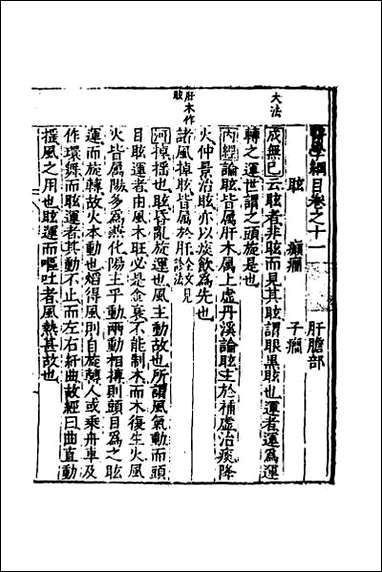 醫學綱目卷之十一　肝膽部
眩　癲癇　子癇
大法
成無已云眩者非眩而見其眩謂眼黑眩也運者運為運
轉之運世謂之頭旋是也
內經論眩皆屬肝木風上虛丹溪論眩主於補虛治痰降
火仲景治眩亦以痰飲為先也
肝木作眩
諸風掉眩皆屬於肝全文見診法
河掉搖也眩昏亂旋運也風主動故也所謂風氣動而頭
目眩運者由風木旺必是金衰不能制木而木復生火風
火皆屬陽多為兼化陽主乎動兩動相搏則頭目為之眩
運而旋轉故火本動也熖得風則自旋轉人或乘舟車及
作環舞而眩運者其動不止而左右紆曲故經曰曲直動
搖風之用也眩運而嘔吐者風熱甚故也